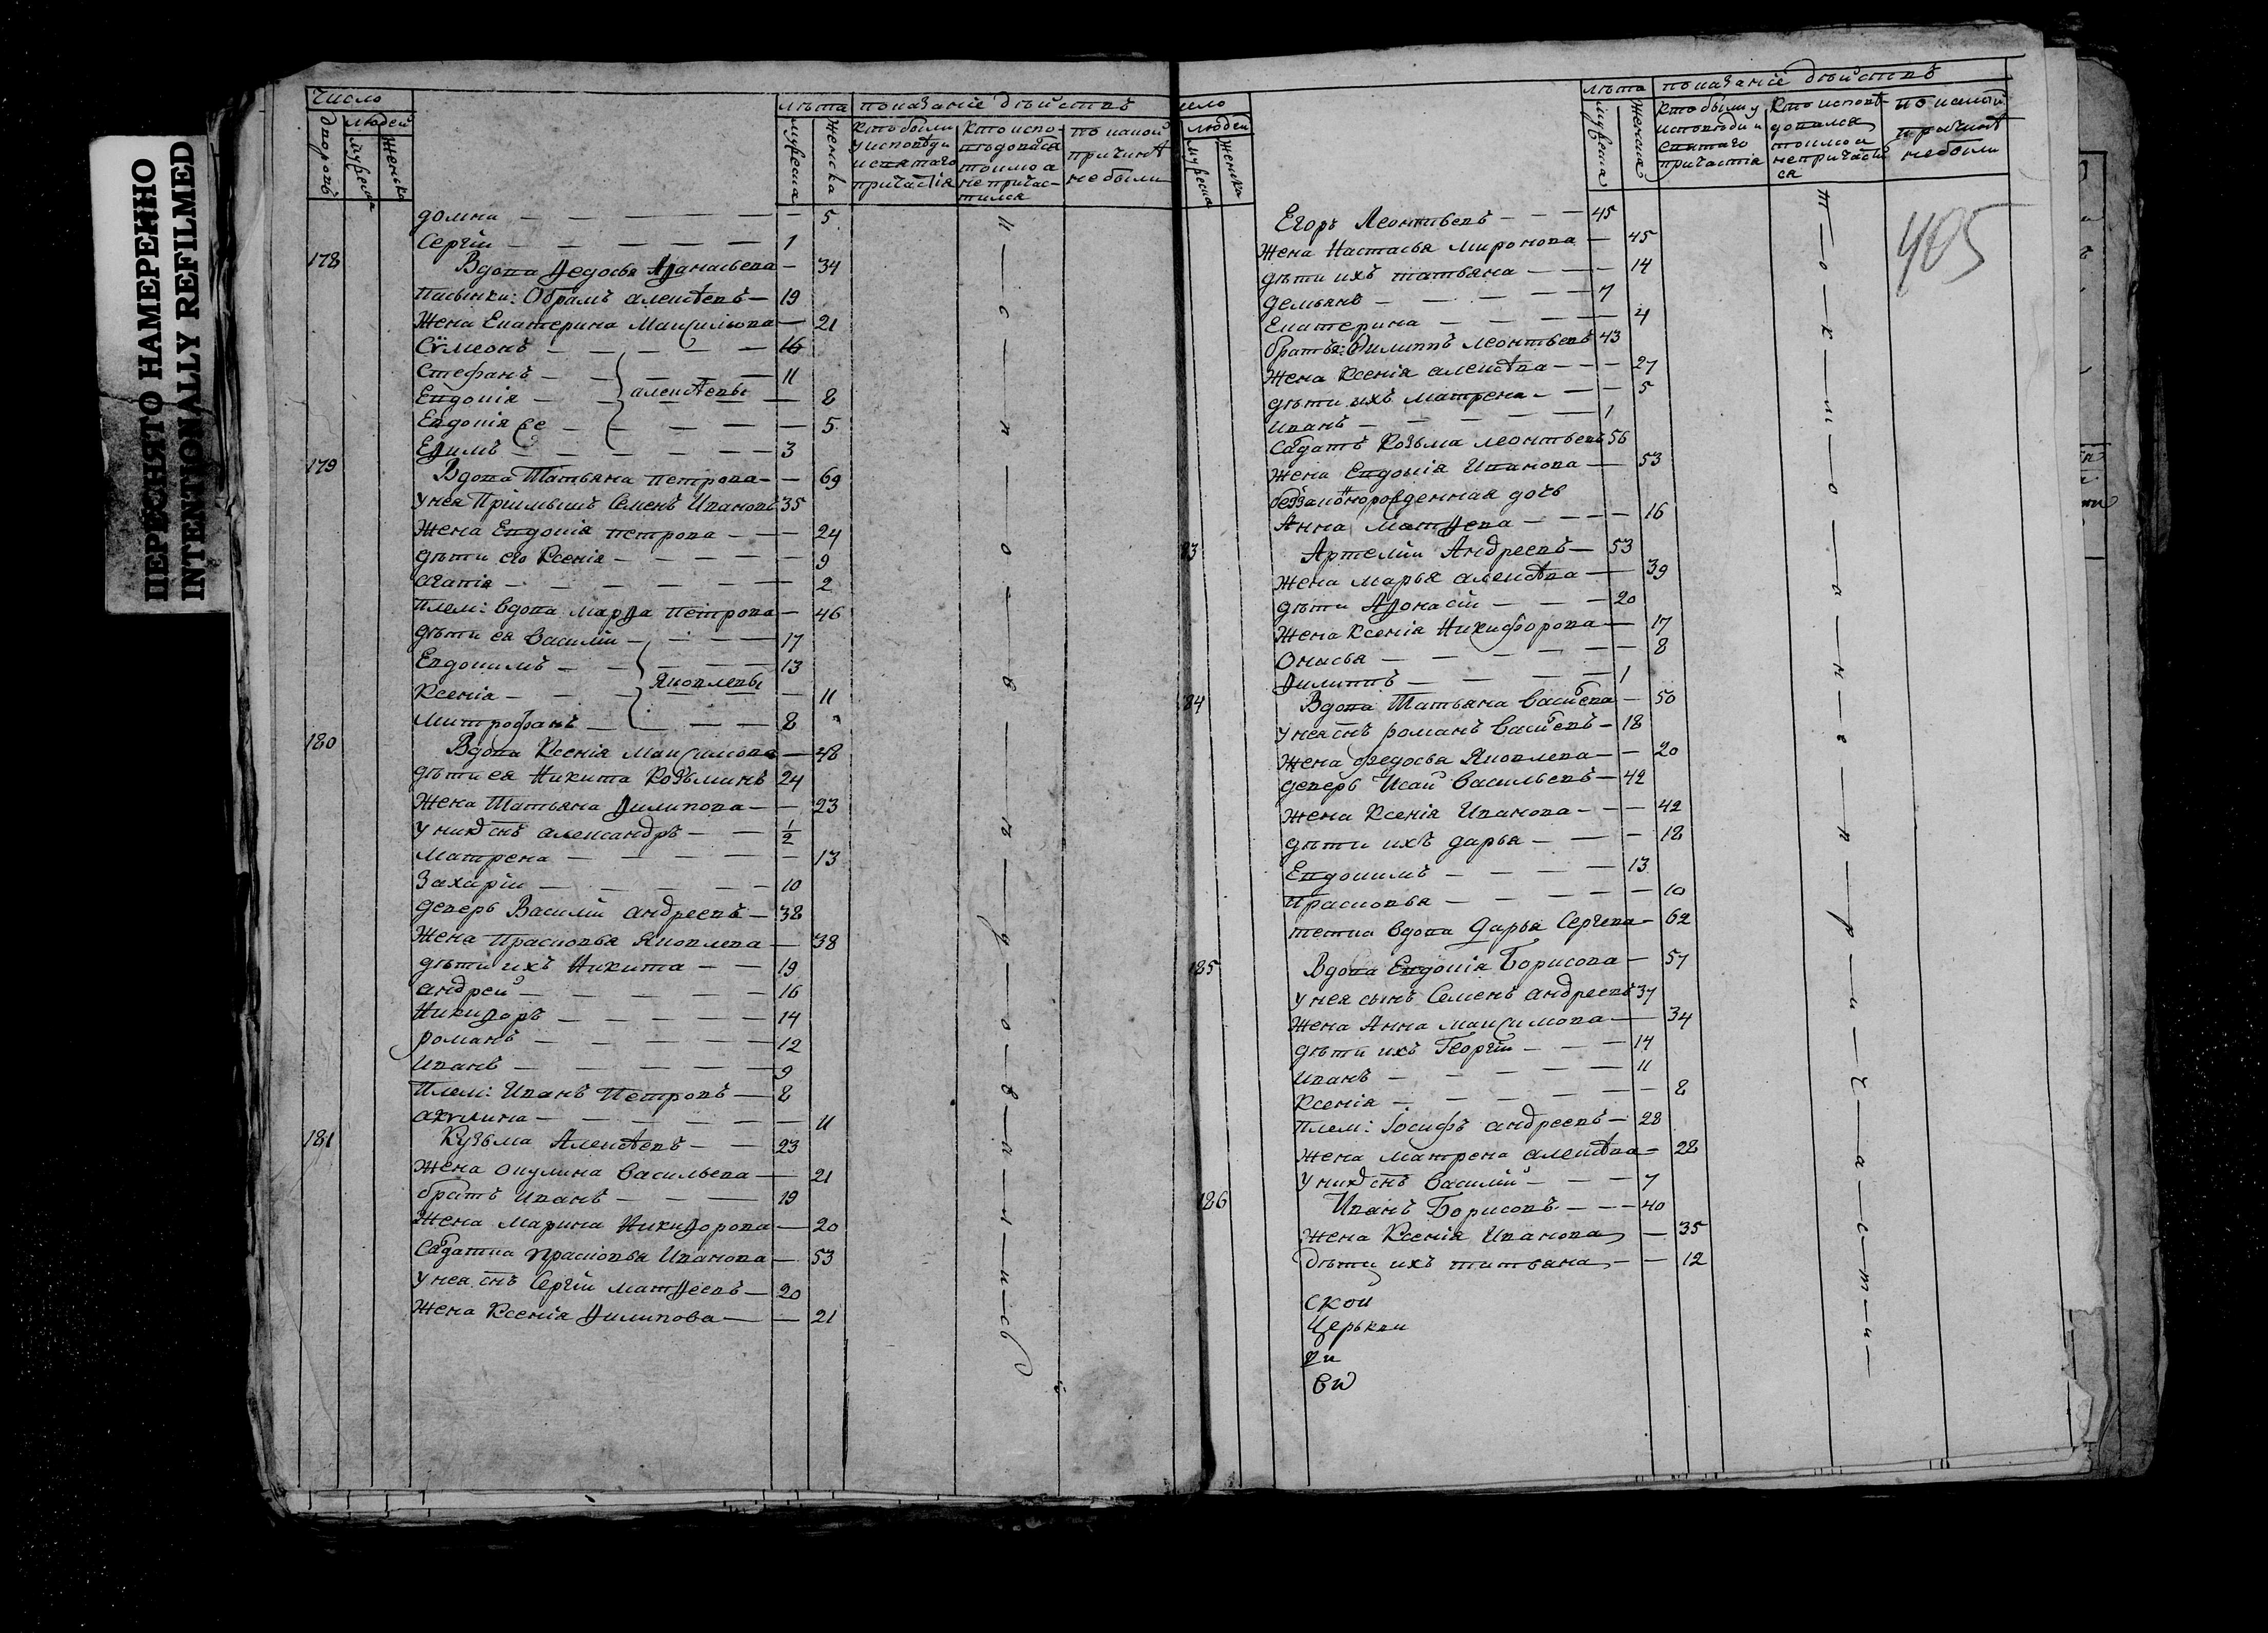 ПЕРЕСНЯТО НАМЕРЕННО
INTENTIONALLY REFILMED
число
людей
дворовъ
мужеска
женска
лѣта
показаніе дѣйствъ
мужеска
женска
кто были
у исповѣди
и святаго
причастія
кто испо-
вѣдовался
токмо а
не причас-
тился
по какой
причинѣ
не были
домна — 5
Сергѣй — 1
178 Вдова Ѳедосья Аѳанасьева — 34
пасынки: Обрамъ алексѣевъ — 19
Жена Екатерина Максимова — 21
Сѵмеонъ — 16
Стефанъ — 11
Евдокія — 8
алексѣевы
Евдокія ее — 5
Еѳимъ — 3
179 Вдова Татьяна петрова — 69
у нея Пріимышъ Семенъ Ивановъ 35
Жена Евдокія петрова — 24
дѣти его Ксенія — 9
агапія — 2
плем: вдова марѳа петрова — 46
дѣти ея василій — 17
Евдокимъ — 13
Яковлевы
Ксенія — 11
митрофанъ — 8
180 Вдова Ксенія максимова — 48
дѣти ея Никита Козьминъ 24
Жена Татьяна Ѳилипова — 23
у них снъ александръ — 1/2
матрена — 13
Захарій — 10
деверь Василій андреевъ — 38
Жена Прасковья Яковлева — 38
дѣти ихъ Никита — 19
андрей — 16
Никиѳоръ — 14
романъ — 12
иванъ — 9
Плем: Иванъ Петровъ — 8
акѵлина — 11
181 Кузьма Алексѣевъ — 23
Жена окулина васильева — 21
братъ иванъ — 19
Жена марина Никиѳорова — 20
Садатка прасковья Иванова — 53
у нея снъ Сергій матѳеевъ — 20
Жена Ксенія Ѳилипова — 21
исло
людей
мужеска
женска
лѣта
показаніе дѣйствъ
мужеска
женска
кто были у
исповѣди и
святаго
причастія
кто исповѣ-
довался
токмо а
не причасти
ся
по какой
причинѣ
не были
405
Егоръ Леонтьевъ — 45
Жена Настасья миронова — 45
дѣти ихъ татьяна — 14
демьянъ — 7
Екатерина — 4
братья: Филиппъ леонтьевъ 43
Жена Ксенія алексѣва — 27
дѣти ихъ матрена — 5
иванъ — 1
Садатъ Козьма леонтьевъ 56
Жена Евдокія Иванова — 53
беззаконорожденная дочь
Анна матѳева — 16
83 Артемій Андреевъ — 53
Жена марья алексѣва — 39
дѣти Аѳонасій — 20
Жена ксенія Никифорова — 17
Онисья — 8
Ѳилиппъ — 1
84 Вдова Татьяна васиева — 50
у нея снъ романъ васиевъ — 18
Жена федосья Яковлева — 20
деверь Исай васильевъ — 42
Жена Ксенія Иванова — 42
дѣти ихъ дарья — 18
Евдокимъ — 13
Прасковья — 10
тетка вдова Дарья Сергева — 62
185 Вдова Евдокія Борисова — 57
у нея сынъ Семенъ андреевъ 37
Жена Анна максимова — 34
дѣти ихъ Георгій — 14
иванъ — 11
Ксенія — 8
Плем: Іосифъ андреевъ — 28
Жена матрена алексѣва — 28
у них снъ василій — 7
186 Иванъ Борисовъ — 40
Жена Ксенія Иванова — 35
дѣти ихъ татьяна — 12
ской
Церькви